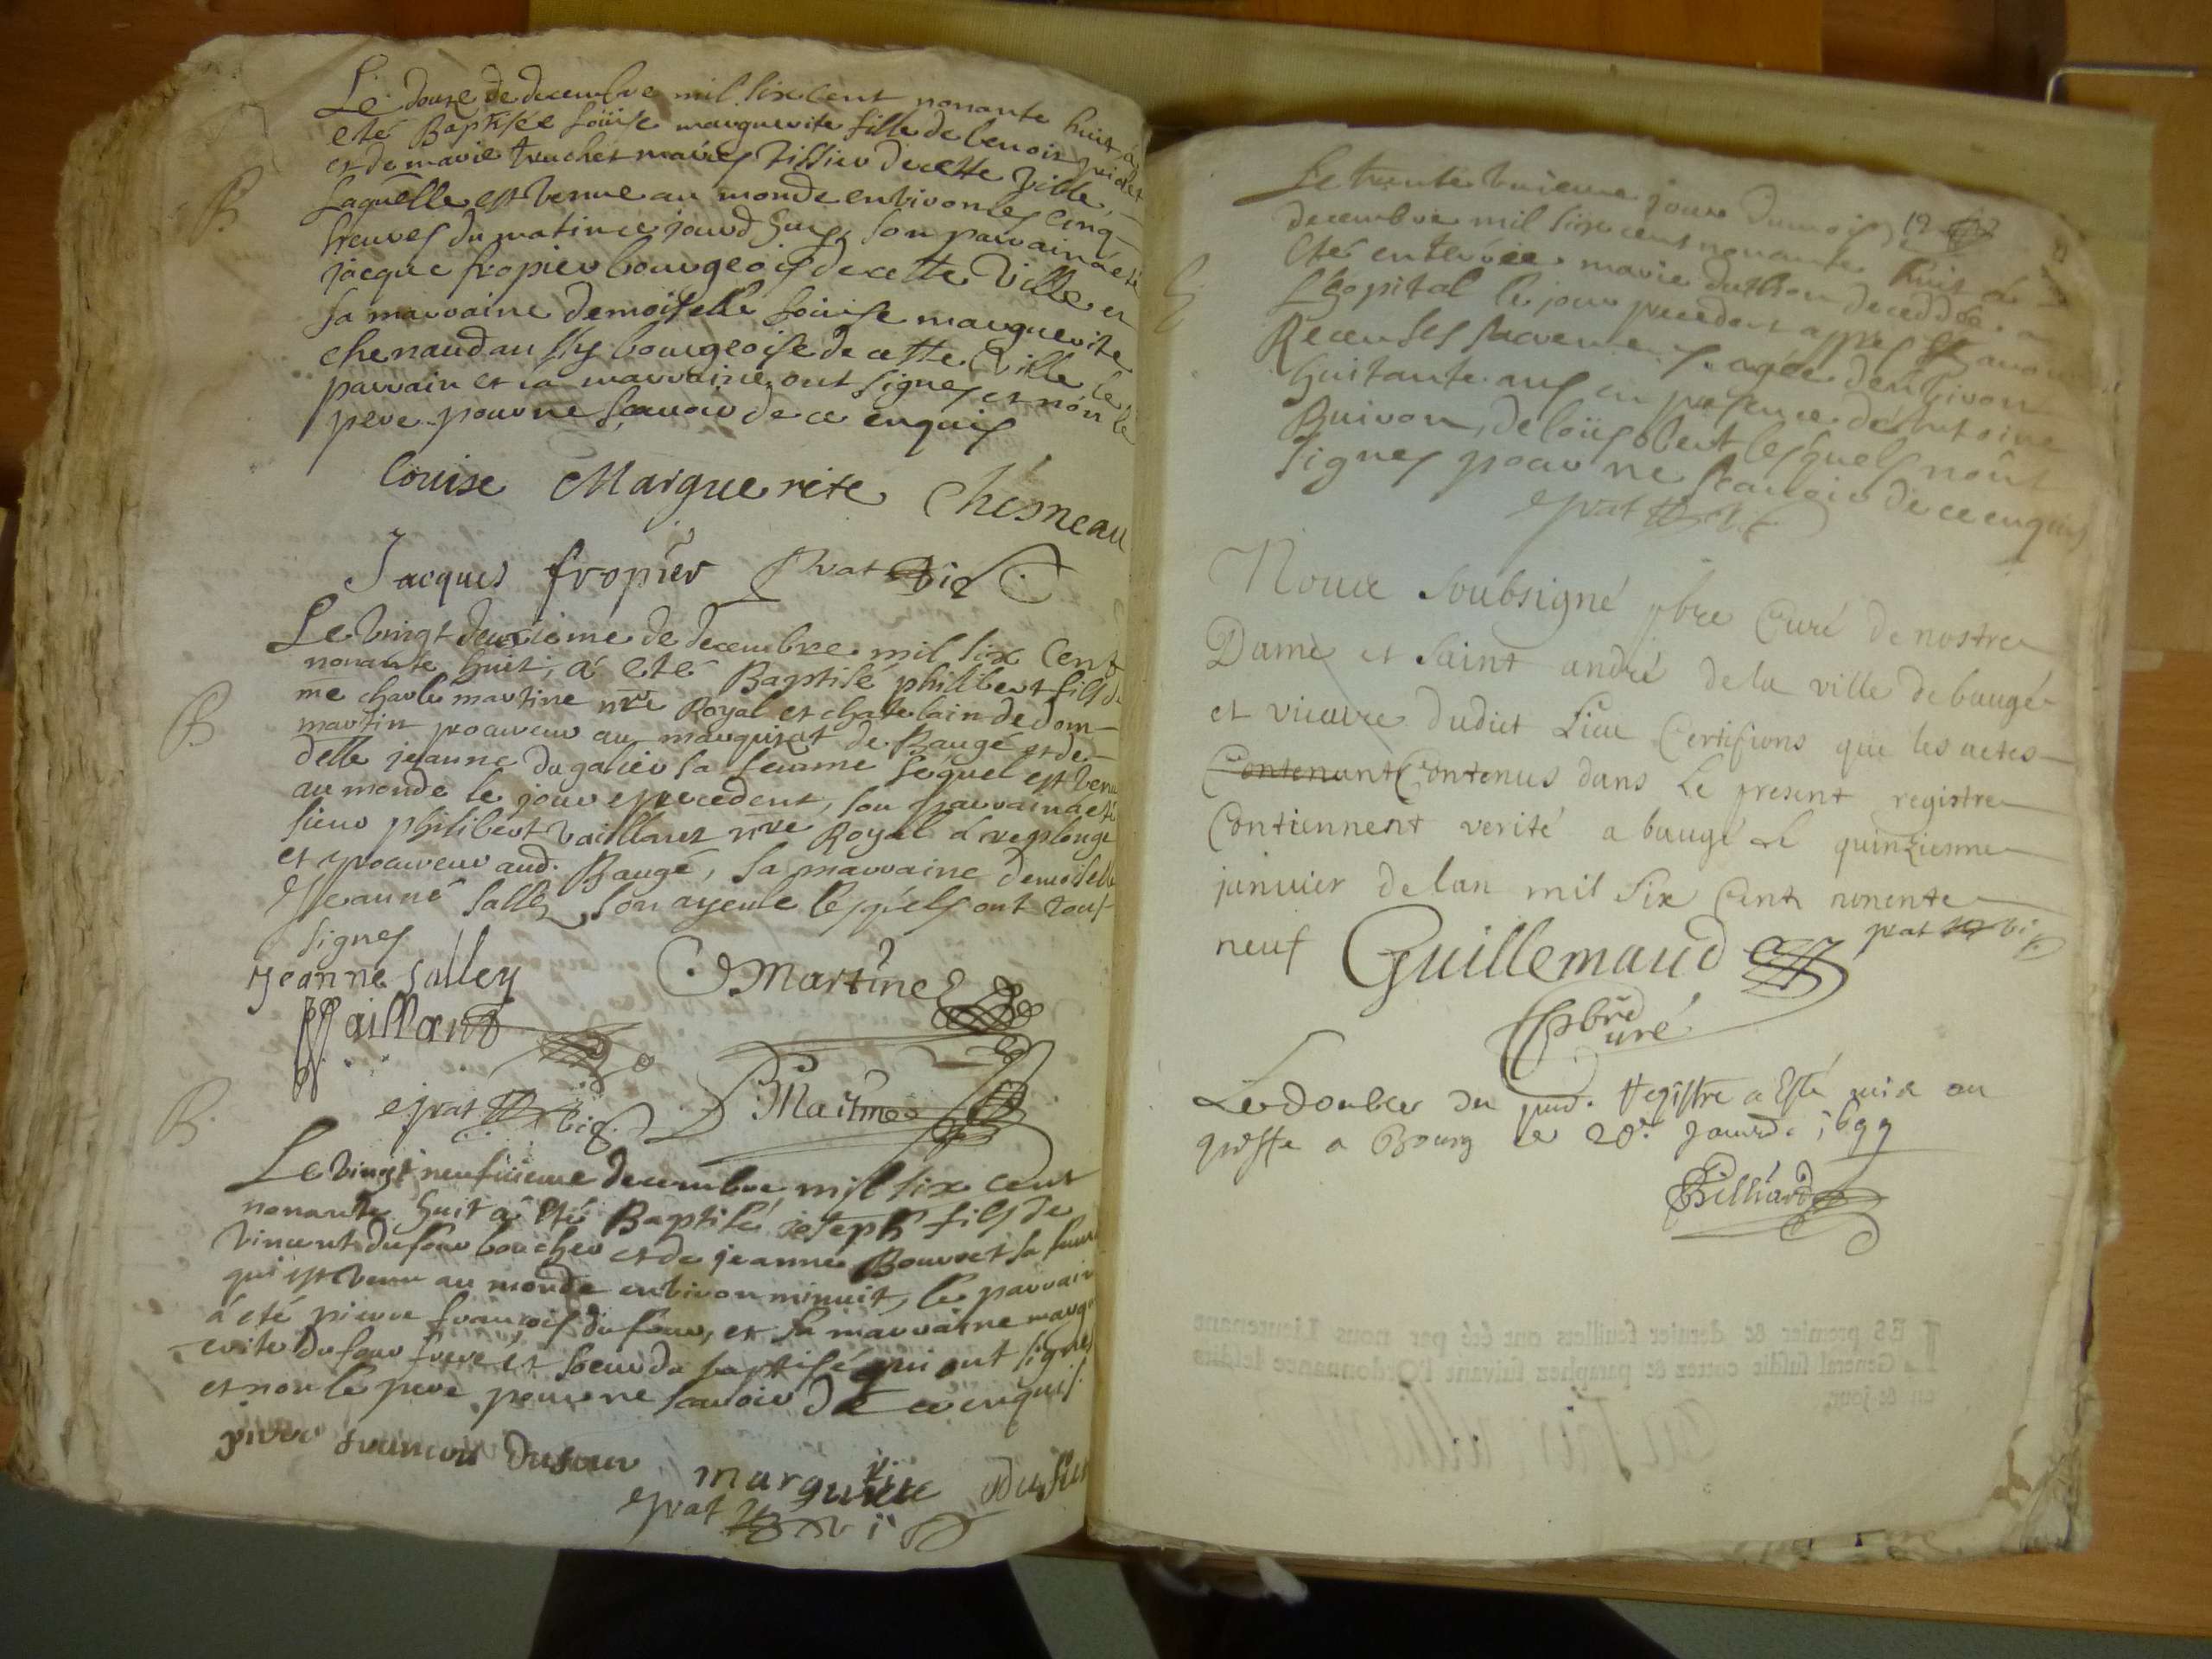 Le douze de decembre mil six cent nonante huit a
eté Baptisée Loüise marguerite fille de benoit
et de marie truchet mariés tissier de cette ville,
B
Laquelle est venue au monde environ les cinq
heures du matin ce jourd huy, son parrain a eté
jacque fropier bourgeois de cette Ville et
sa marraine demoiselle Loüise marguerite
chenaud aussy bourgeoise de cette Ville le
parrain et la marraine ont signes et non le
pere pour ne sçavoir de ce enquis
Louise Marguerite Chesneau
Jacques fropier Prat vic
Le vingt deuxieme de decembre mil six cent
nonante huit, a eté Baptisé philibert fils de
B
me charle martine nre Royal et chatelain de dom-
martin procureur au marquisat de Baugé et de
delle jeanne dagalier sa femme lequel est venu
au monde le jour precedent, son parrain a eté
sieur philibert Vaillant nre Royal a replonge
et procureur aud. Baugé, sa marraine demoiselle
Jeanne Salley son ayeule lesquels ont tous
signes
Jeanne Salley Martine
Vaillant
Prat vic. Martine
B.
Le vingt neufvieme decembre mil six cent
nonante huit a eté Baptisé joseph fils de
Vincent dufour boucher et de jeanne Bourret sa femme
qui est venu au monde environ minuit, le parrain
a eté pierre francois dufour, et sa marraine margu-
erite dufour frere et soeur du baptisé qui ont signes
et non le pere pour ne savoir de ce enquis.
piere francois dufour marguerite dufour
Prat vic
12
Le trente unieme jour du mois de
decembre mil six cens nonante huit a
eté enterrée marie duthon decedée a
E
L'hopital le jour precedent appres avoir
Receu ses sacremens agée d'environ
huitante ans en presence d'Antoine
Buiron, de loüis lesquels n'ont
signes pour ne scavoir de ce enquis
Prat vic
Nous soubsigné pbre Curé de nostre
Dame et saint andré de la ville de baugé
et vicaire dudict Lieu Certifions que les actes
Contenant Contenus dans le present registre
Contiennent verité a baugé le quinzienne
janvier de lan mil six cent nonente
neuf Guillemaud Prat vic
pbre
curé
Le double du pnt. Registre a esté mis au
greffe a Bourg le 20e. Janvr. 1699
LES premier & dernier feuillets ont été par nous Lieutenant
General susdit cottez & paraphez suivant l'Ordonnance lesdits
an & jour.